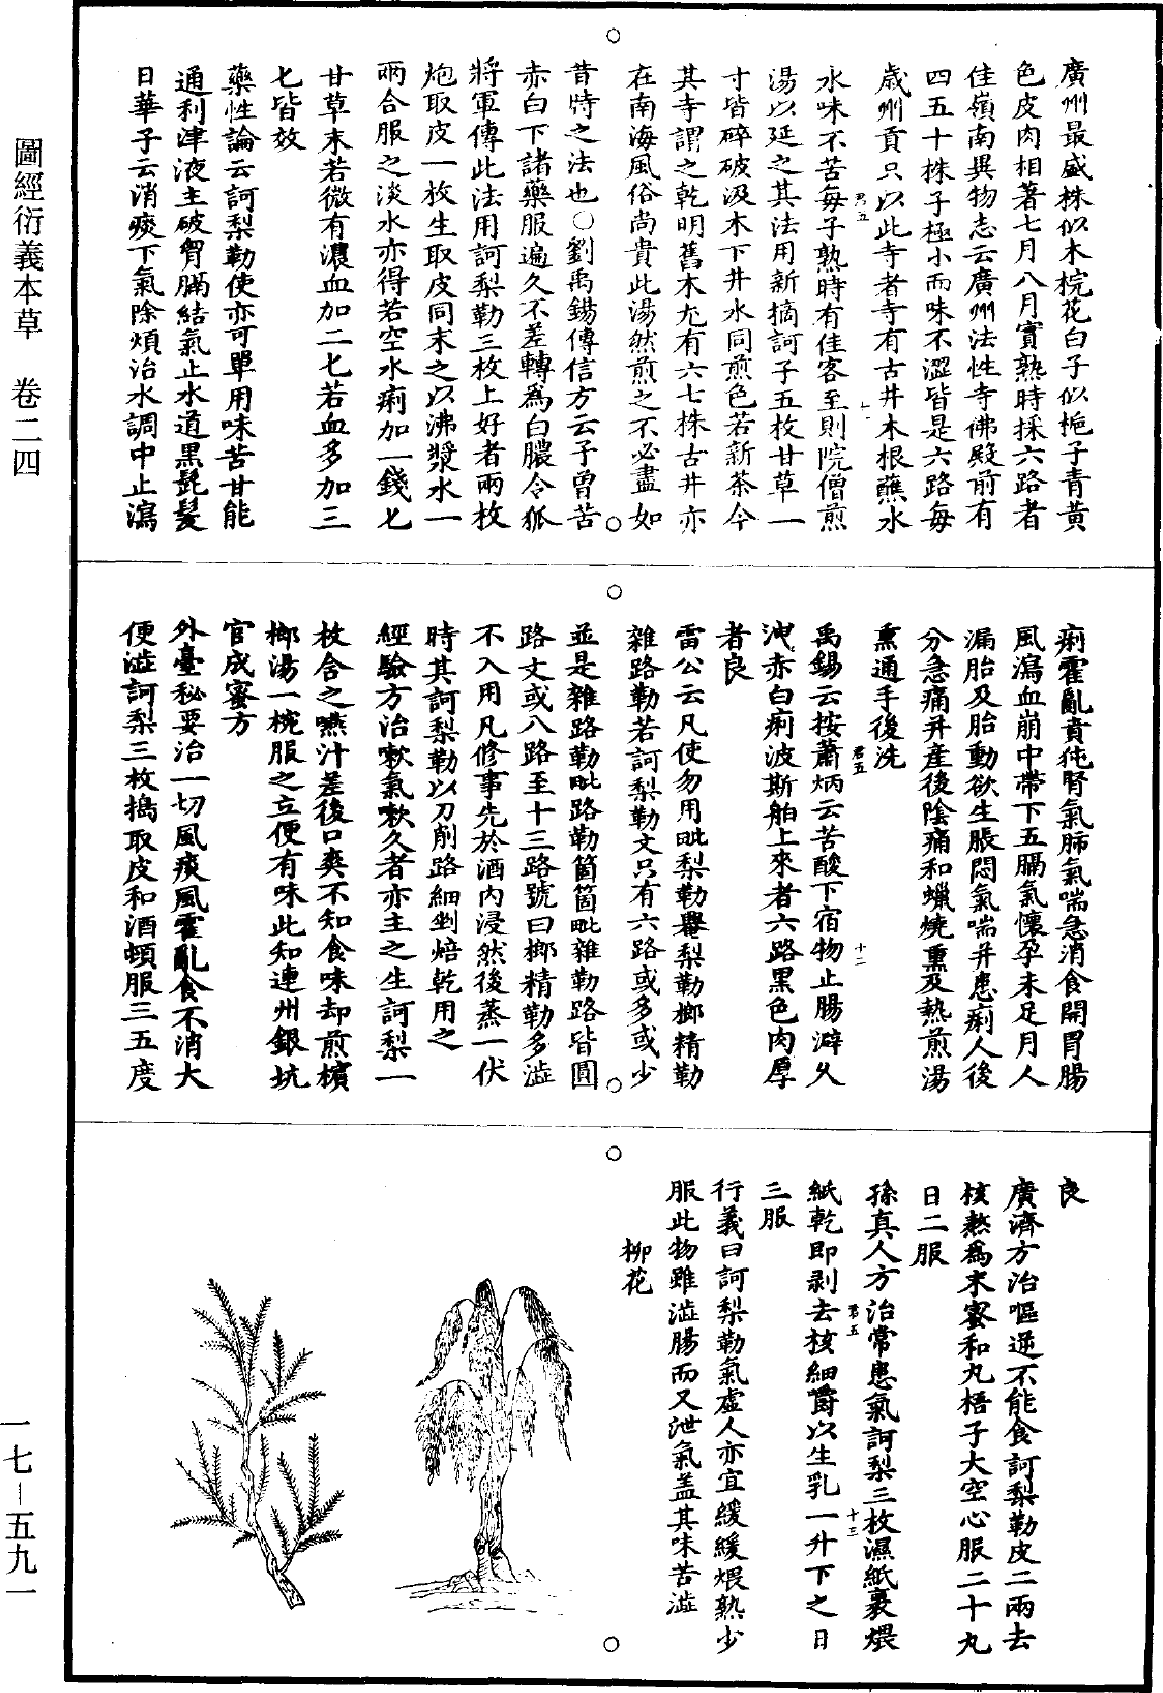 廣州最盛株似木梡花白子似梔子青黄
色皮肉相著七月八月實熟時採六路者
佳嶺南異物志云廣州法性寺佛殿前有
四五十株子極小而味不澀皆是六路每
歲州貢只以此寺者寺有古井木根蘸水
水味不苦每子熟時有佳客至則院僧煎
湯以延之其法用新摘訶子五枚甘草一
寸皆碎破汲木下井水同煎色若新茶今
其寺謂之乾明舊木尤有六七株古井亦
在南海風俗尚貴此湯然煎之不必盡如
昔時之法也○劉禹錫傳信方云予曾苦
赤白下諸藥服遍久不差轉爲白膿令狐
將軍傳此法用訶梨勒三枚上好者兩枚
炮取皮一枚生取皮同末之以沸漿水一
兩合服之淡水亦得若空水痢加一錢匕
甘草末若微有濃血加二七若血多加三
七皆效
藥性論云訶梨勒使亦可單用味苦甘能
通利津液主破胷膈結氣止水道黑髭髮
日華子云消痰下氣除煩治水調中止瀉
痢霍亂賁㹠腎氣肺氣喘急消食開胃腸
風瀉血崩中帶下五膈氣懷孕未足月人
漏胎及胎動欲生脹悶氣喘并患痢人後
分急痛并産後陰痛和蠟燒熏及熱煎湯
熏通手後洗
禹錫云按蕭炳云苦酸下宿物止腸澼久
洩赤白痢波斯舶上來者六路黑色肉厚
者良
雷公云凡使勿用毗梨勒罨梨勒榔精勒
雜路勒若訶梨勒文只有六路或多或少
並是雜路勒毗路勒箇箇毗雜勒路皆圓
路文或八路至十三路號曰榔精勒多澁
不入用凡修事先於酒内浸然後蒸一伏
時其訶梨勒以刀削路細剉焙乾用之
經驗方治嗽氣嗽久者亦主之生訶梨一
枚含之嚥汁差後口爽不知食味却煎檳
榔湯一椀服之立便有味此知連州銀坑
官成蜜方
外臺秘要治一切風痰風霍亂食不消大
便澁訶梨三枚搗取皮和酒頓服三五度
良
廣濟方治嘔逆不能食訶梨勒皮二兩去
核熬爲末蜜和丸梧子大空心服二十丸
日二服
孫真人方治常患氣訶梨三枚濕紙裹煨
紙乾即剥去核細嚼以生乳一升下之日
三服
衍義曰訶梨勒氣虛人亦宜緩緩煨熟少
服此物雖澁腸而又泄氣蓋其味苦澁
柳花
圖經衍義本草 卷二四
一七—五九一
君五
十一
君五
十二
君五
十三